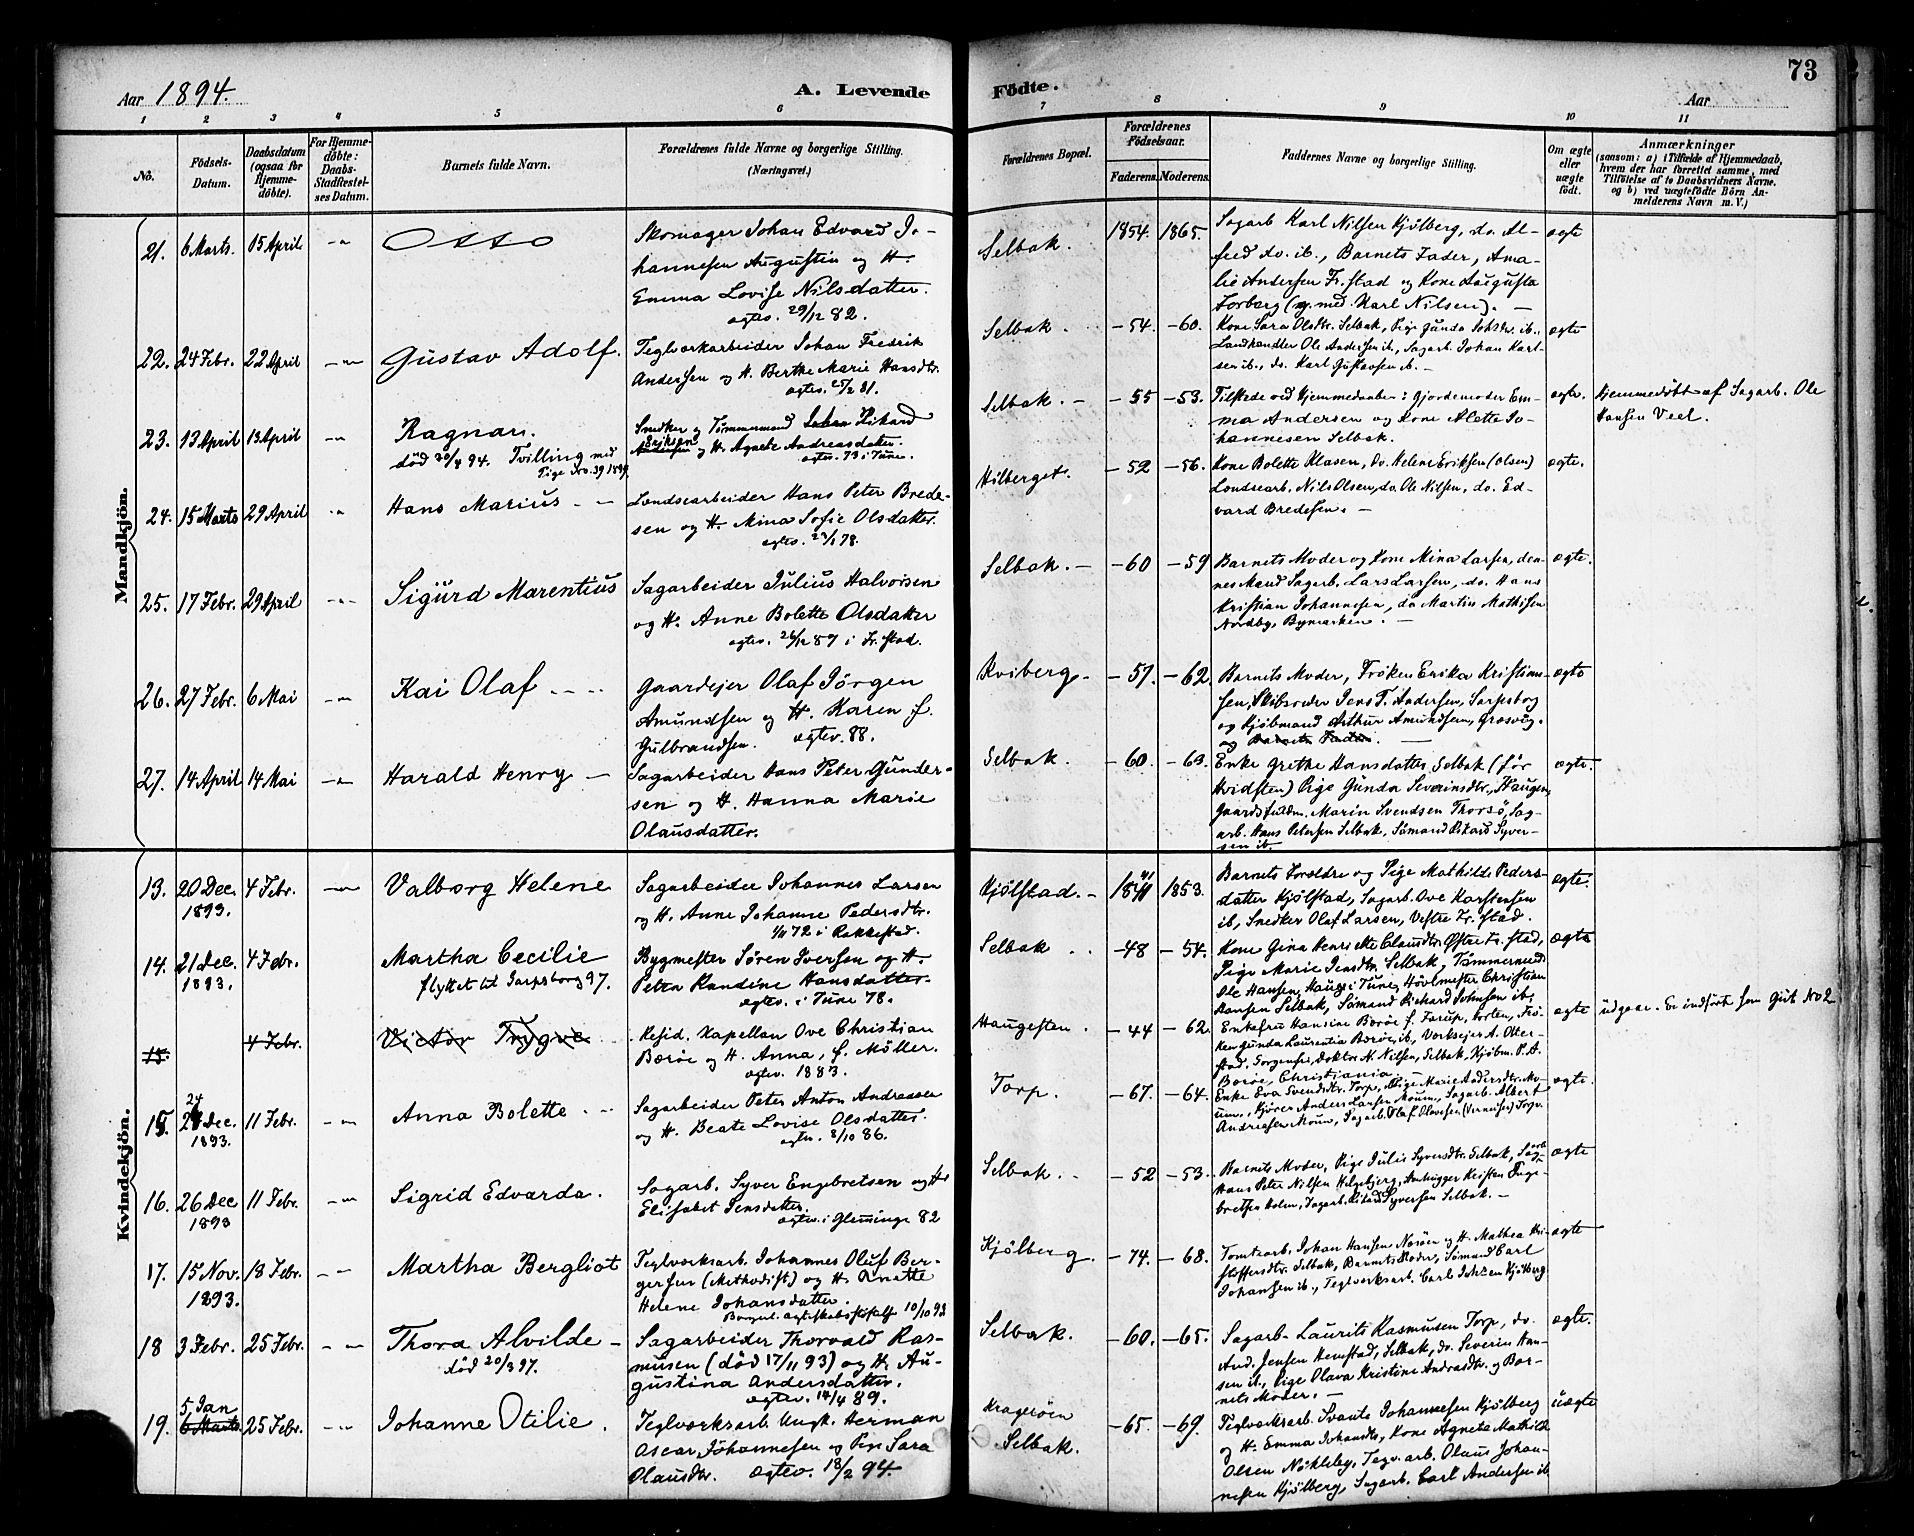 Aar 1894. A. Levende Födte. Aar 73
1 2 3 4 5 6 7 8 9 10 11
No. Födsels-Datum. Daabsdatum (ogsaa for Hjemmedöbte). For Hjemmedöbte: Daabs-Stadfestelses Datum. Barnets fulde Navn. Forældrenes fulde Navne og borgerlige Stilling. (Næringsvei.) Forældrenes Bopæl. Forældrenes Födselsaar. Faderens. Moderens. Faddernes Navne og borgerlige Stilling. Om ægte eller uægte födt. Anmærkninger (saasom: a) i Tilfælde af Hjemmedaab, hvem der har forrettet samme, med Tilföielse af to Daabsvidners Navne. og b) ved uægtefödte Börn Anmelderens Navn m. V.)
Mandkjön.
21. 6 Marts. 15 April Otto
Skomager Johan Edvard Jo-
hannesen Augustin og H.
Emma Lovise Nilsdatter.
ægtev. 29/12 82.
Selbak. 1854. 1865.
Sagarb Karl Nilsen Kjölberg, do. Al-
fred do. ib., Barnets Fader, Ama-
lie Andersen Fr.stad og Kone Augusta
Torberg (g. med Karl Nilsen). —
ægte
22. 24 Febr. 22 April Gustav Adolf.
Teglverkarbeider Johan Fredrik
Andersen og H. Berthe Marie Hansdtr.
ægtev. 25/2 81.
Selbak. — 54. — 60.
Kone Sara Olsdtr. Selbak, Pige Gunda Johsdtr. ib.,
Landhandler Ole Andersen ib., Sagarb. Johan Karl-
sen ib., do. Karl Gustavsen ib. —
ægte
23. 13 April 13 April Ragnar.
død 30/4 94. Tvilling med
Pige No. 39 1894.
Snedker og Tömmermand Johan Rikard
Eriksen
Andersen og H. Agnete Andreasdatter.
ægtev. 73 i Tune.
Selbak. — — 55 — 53.
Tilstede ved Hjemmedaaben: Gjordemoder Em-
ma Andersen og Kone Alette Jo-
hannesen Selbak.
ægte.
Hjemmedöbt af Sagarb. Ole
Hansen Veel.
24. 15 Marts 29 April Hans Marius —
Londsearbeider Hans Peter Brede-
sen og H. Mina Sofie Olsdatter.
ægtev. 23/1 78.
Hilberget. — 52 — 56.
Kone Bolette Klasen, do. Helene Eriksen (Olsen)
Londsearb. Nils Olsen, do. Ole Nilsen, do. Ed-
vard Bredesen. —
ægte.
25. 17 Febr. 29 April Sigurd Marentius
Sagarbeider Julius Halvorsen
og H. Anne Bolette Olsdatter
ægtev. 26/12 87 i Fr.stad.
Selbak. — — 60 — 59
Barnets Moder og Kone Mina Larsen, den-
nes Mand Sagarb. Lars Larsen, do. Hans
Kristian Johannesen, do Martin Mathisen
Nordby, Bymarken. —
ægte.
26. 27 Febr. 6 Mai Kai Olaf
Gaardejer Olaf Jörgen
Amundsen og H. Karen f.
Gulbrandsen. ægtev. 88.
Kviberg. — 57. — 62.
Barnets Moder, Fröken Erika Kristian-
sen, Skibsreder Jens T. Andersen, Sarpsborg
og Kjöbmand Arthur Amundsen, Greaaker.
og Barnets Fader. —
ægte
27. 14 April 14 Mai Harald Henry —
Sagarbeider Hans Peter Gunder-
sen og H. Hanna Marie
Olausdatter.
Selbak. — 60. — 63.
Enke Grethe Hansdatter Selbak (för
Hvidsten) Pige Gunda Severinsdtr., Haugen,
Gaardsfuldm. Marin Svendsen Thorsö, Sag-
arb. Hans Petersen Selbak, Sömand Rikard Syver-
sen ib.
ægte.
Kvindekjön.
13. 20 Dec. 1893. 4 Febr. Valborg Helene
Sagarbeider Johannes Larsen
og H. Anne Johanne Pedersdtr.
1/11 72 i Rakkestad.
Kjölstad. — 1841 1853.
Barnets Foreldre og Pige Mathilde Peders-
datter Kjölstad, Sagarb. Ove Karstensen
ib, Snedker Olaf Larsen, Vestre Fr.stad.
ægte.
14. 21 Dec. 1893. 4 Febr. Martha Cecilie
flyttet til Sarpsborg 97.
Bygmester Sören Iversen og H.
Petra Randine Hansdatter
ægtev. i Tune 78.
Selbak — 48 — 54.
Kone Gina Henriette Clausdtr. Østre Fr.stad,
Pige Marie Jensdtr. Selbak, Tömmermd.
Ole Hansen, Hauge i Tune, Hövlmester Christian
Hansen Selbak, Sömand Richard Johnsen ib.
ægte
15. 4 Febr. Victor Trygve
Resid. Kapellan Ove Christian
Boröe og H. Anna, f. Möller.
ægtev. 1883.
Haugesten. — 44 — 62.
Enkefru Hansine Boröe f. Farup, Horten, Frö-
ken Gunda Laurentia Boröe, ib, Verksejer A. Otter-
stad, Sorgenfri, Doktor N. Nilsen, Selbak, Kjöbm. P. A.
Boröe, Christiania.
ægte
udgaar. Er indfört som Gut No 2
15. 24 Dec. 1893. 11 Febr. Anna Bolette
Sagarbeider Peter Anton Andreasen
og H. Beate Lovise Olsdatter.
ægtev. 8/10 86.
Torp. — 67. — 64.
Enke Eva Svendsdtr. Torp, Pige Marie Andersdtr. Mo-
um, Kjörer Anders Larsen Moum, Sagarb. Albert
Andreasen Moum, Sagarb. Olaf Olavesen (Vernesen) Torp.
ægte.
16. 26 Dec 1893 11 Febr. Sigrid Edvarda.
Sagarb. Syver Engebretsen og H.
Elisabet Jensdatter.
ægtev. i Glemminge 82
Selbak. — 52 — 53.
Barnets Moder, Pige Julie Syversdtr. Selbak, Sagarb
Hans Peter Nilsen Helgebjerg, Stenhugger Kristen Inge-
bretsen Holm, Sagarb. Rikard Syversen Selbak. —
ægte
17. 15 Nov. 1893. 18 Febr. Martha Bergliot
Teglverksarb. Johannes Oluf Ber-
gersen (Methodist) og H. Anette
Helene Johansdatter.
Borgerl. ægteskabsstiftelse 10/10 93
Kjölberg. — 74. — 68.
Tomtearb. Johan Hansen Næröen og H. Mathea Kri-
stoffersdtr. Selbak, Barnets Moder, Sömand Carl
Johansen ib., Teglverksarb. Carl Johsen Kjölberg
ægte
18 3 Febr. 25 Febr. Thora Alvilde —
död 20/3 97.
Sagarbeider Thorvald Ras-
musen (död 17/11 93) og H. Au-
gustina Andersdatter.
ægtev. 14/4 89.
Selbak. — 60. — 65.
Sagarb. Laurits Rasmusen Torp, do.
And. Jensen Hemstad, Selbak, do. Severin Han-
sen ib., Pige Olava Kristine Andreasdtr. og Bar-
nets Moder. —
ægte.
19. 5 Jan 6 Marts. 25 Febr. Johanne Otilie.
Teglverksarb. Ungk. Herman
Oscar Johannesen og Pige Sara
Olausdtr. ægtev. 18/2 94.
Kragerøen
Selbak. — 65. — 69.
Teglverksarb. Svante Johannesen Kjölberg
og H. Emma Johansdtr, Kone Agnete Mathilde
Olsen Nökleby, Teglv.arb. Olaus Johan-
nesen Kjölberg, Sagarb. Carl Andersen ib
uægte